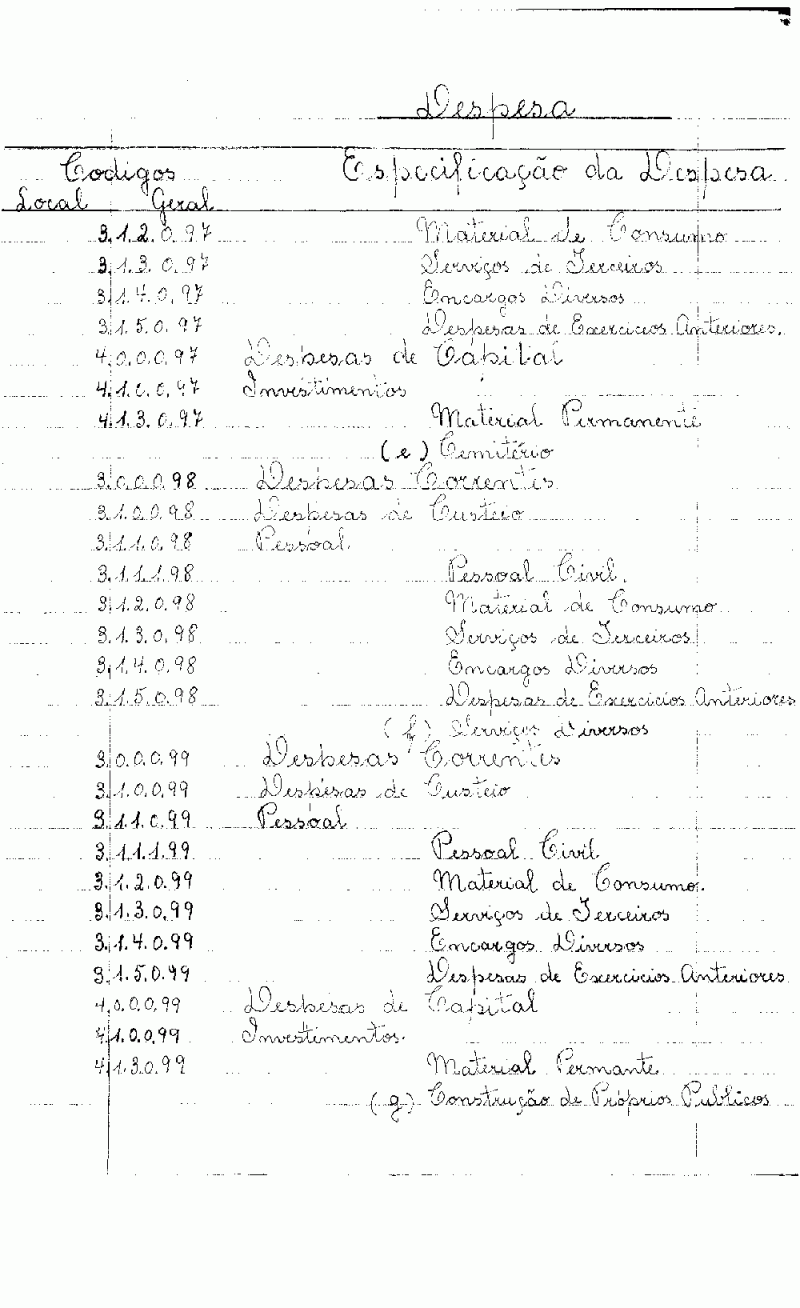 Despesa
Codigos Especificação da Despesa
Local Geral
3.1.2.0.97 Material de Consumo
3.1.3.0.97 Serviços de Terceiros
3.1.4.0.97 Encargos Diversos
3.1.5.0.97 Despesas de Exercicios Anteriores.
4.0.0.0.97 Despesas de Capital
4.1.0.0.97 Investimentos
4.1.3.0.97 Material Permanente
(e) Cemitério
3.0.0.0.98 Despesas Correntes
3.1.0.0.98 Despesas de Custeio
3.1.1.0.98 Pessoal.
3.1.1.1.98 Pessoal Civil.
3.1.2.0.98 Material de Consumo
3.1.3.0.98 Serviços de Terceiros
3.1.4.0.98 Encargos Diversos
3.1.5.0.98 Despesas de Exercicios Anteriores
(f) Serviços Diversos
3.0.0.0.99 Despesas Correntes
3.1.0.0.99 Despesas de Custeio
3.1.1.0.99 Pessoal
3.1.1.1.99 Pessoal Civil
3.1.2.0.99 Material de Consumo.
3.1.3.0.99 Serviços de Terceiros
3.1.4.0.99 Encargos Diversos
3.1.5.0.99 Despesas de Exercicios Anteriores
4.0.0.0.99 Despesas de Capital
4.1.0.0.99 Investimentos.
4.1.3.0.99 Material Permante
(g) Construção de Próprios Publicos